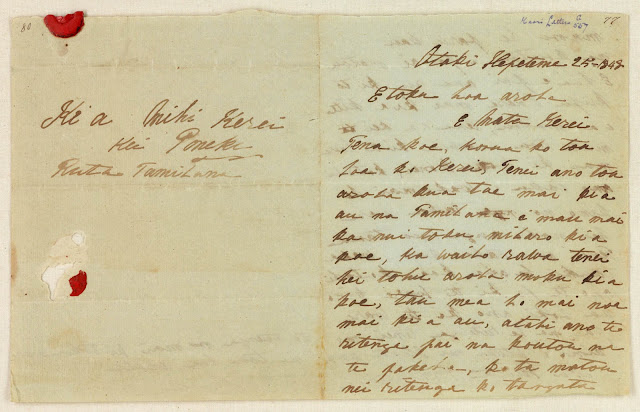 80
Ki a Mihi Kerei
Kei Poneke
Ruta Tamihana
Maori Letters
557
77
Otaki Hepetema 25 - 1848
E toku hoa aroha
E Mata Kerei
Tena koe, korua ko tou
hoa ko Kerei, Tenei ano tou
aroha kua tae mai ki a
au na Tamihana i mau mai
ka nui toku miharo ki a
koe, ka waiho rawa tenei
hei tohu aroha moku ki a
koe, tau mea ho mai noa
mai ki a au, atahi ano te
ritenga pai na koutou na
te pakeha, ko ta matou
nei ritenga ko tangata